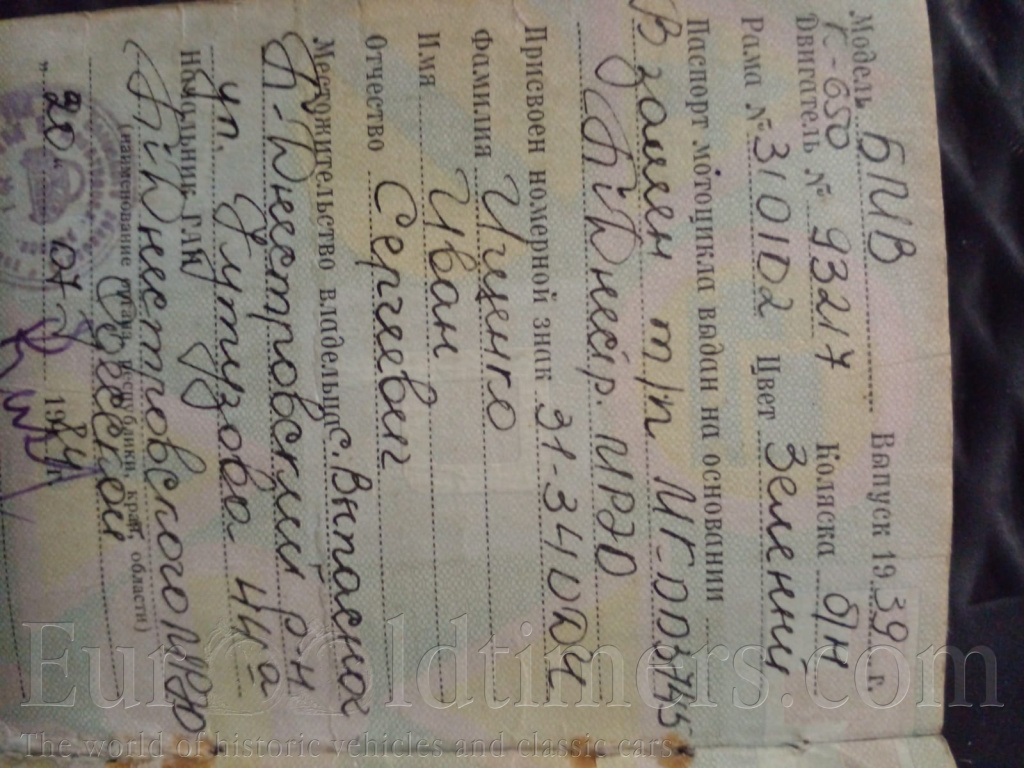 Модель БМВ Выпуск 1939 г.
К-650
Двигатель № 93217 Коляска
Рама № 3101D2 Цвет Зеленний
Паспорт мотоцикла выдан на основании
Взамен т/п МГ
Присвоен номерной знак 31-34
Фамилия Ищенко
Имя Иван
Отчество Сергеевич
Местожительство владельца с. Выпасное
Б-Днестровский р-н
ул. Кутузова 44а
Начальник ГАИ
Б-Днестровского МРЭО
(наименование органа, республики, края, области)
Одесской
"20" 07 1984
EuroOldtimers.com
The world of historic vehicles and classic cars